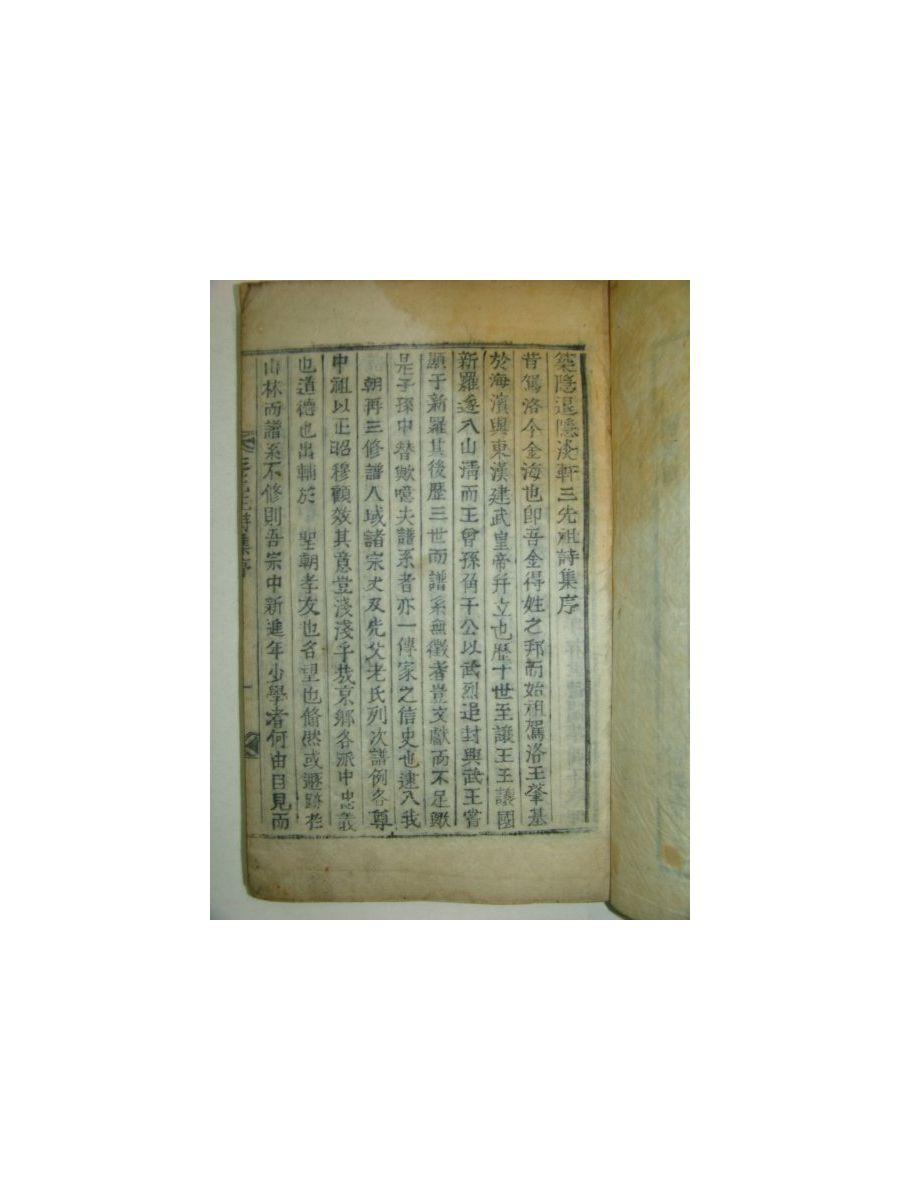 築隱退隱淺軒三先祖詩集序
昔駕洛今金海也卽吾金得姓之邦而始祖駕洛王肇基
於海濱與東漢建武皇帝幷立也歷十世至讓王王讓國
新羅遂入山淸而王曾孫角干公以武烈追封興武王嘗
顯于新羅其後歷三世而譜系無徵者豈文獻而不足歟
是子孫中替歟噫夫譜系者亦一傳家之信史也逮入我
朝再三修譜八域諸宗丈及先父老氏列次譜例各尊
中祖以正昭穆顧效其意豈淺淺乎哉京鄕各派中忠義
也道德也出輔於 聖朝孝友也名望也翛然或遯跡於
山林而譜系不修則吾宗中新進年少學者何由目見而
三先生詩集序
一